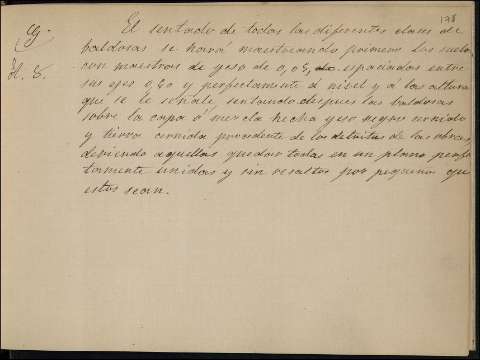 178
El sentado de todas las diferentes clases de
baldosas se hará maestreando primero los suelos
con maestras de yeso de 0,05, espaciadas entre
sus ejes 0,60 y perfectamente á nivel y á la altura
que se le señale, sentando despues las baldosas
sobre la capa ó mezcla hecha yeso negro cernido
y tierra cernida procedente de los detritus de las obras,
debiendo aquellas quedar todas en un plano perfec
tamente unidas y sin resaltos por pequeños que
estos sean.